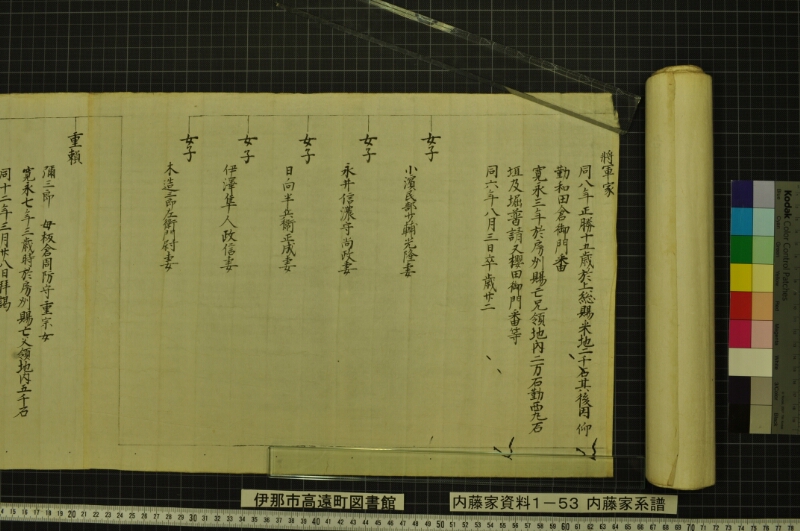 將軍家
同八年正勝十五歳於上総賜采地二千石其後因仰
勤和田倉御門番
寛永三年於房州賜亡兄領地内二万石勤西丸石
垣及堀普請又櫻田御門番等
同六年八月三日卒歳廿二
女子
小濱民部少輔光隆妻
女子
永井信濃守尚政妻
女子
日向半兵衛正成妻
女子
伊澤隼人政信妻
女子
木造三郎左衛門妻
重頼
彌三郎 母板倉周防守重宗女
寛永七年三歳時於房州賜亡父領地内五千石
同十二年三月廿八日拝謁
伊那市高遠町図書館
内藤家資料1－53 内藤家系譜
Kodak Color Control Patches